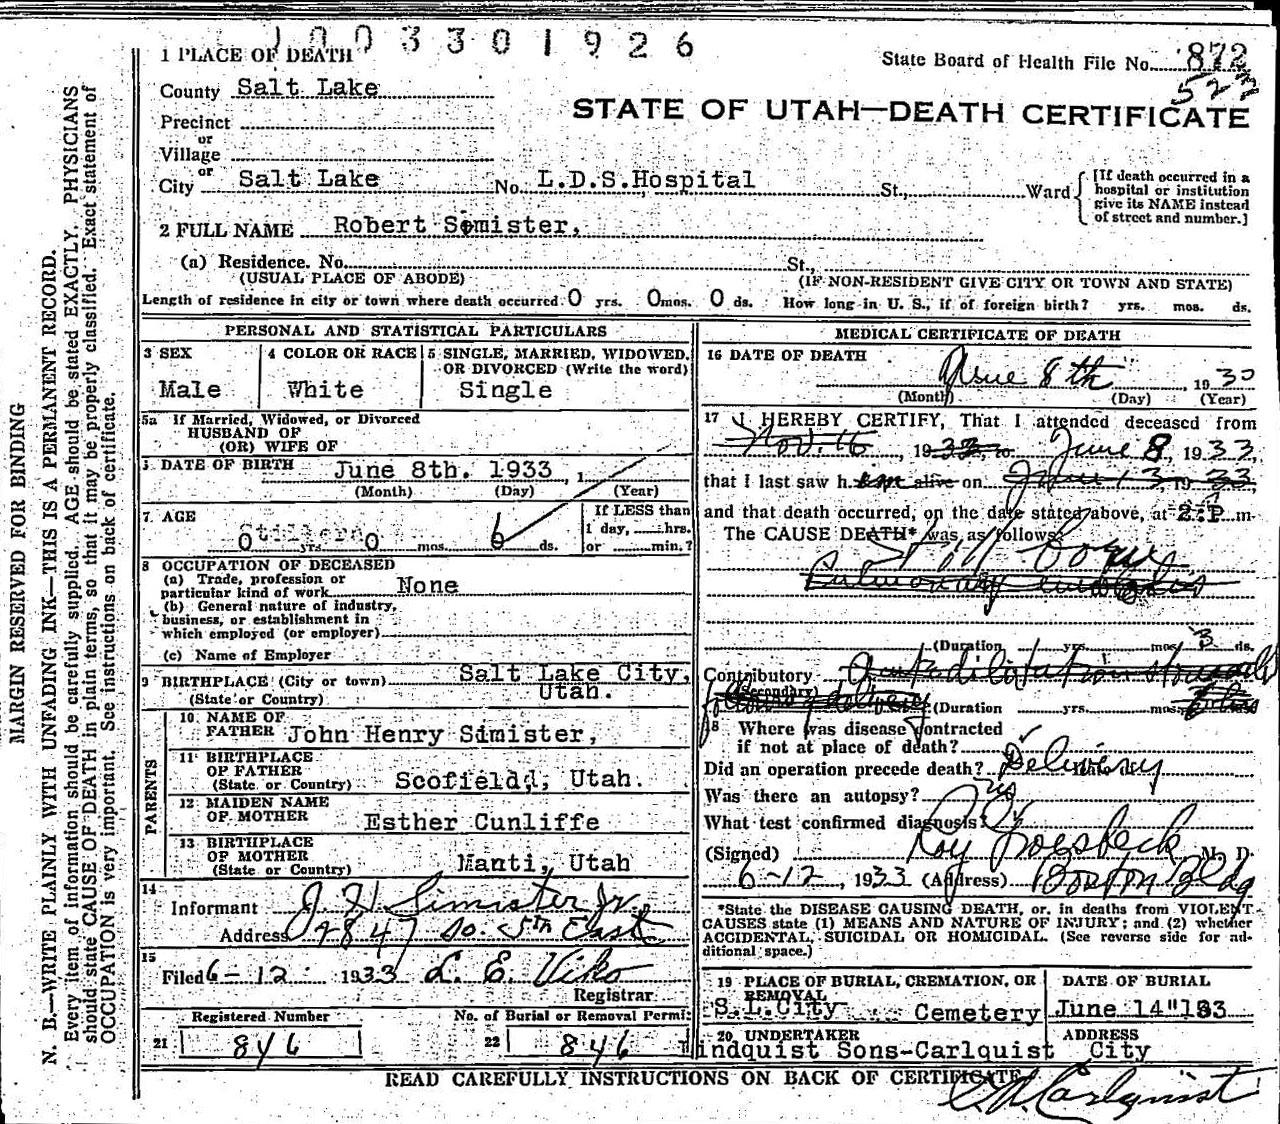 1003301926
1 PLACE OF DEATH
State Board of Health File No. 872
522
County Salt Lake
STATE OF UTAH—DEATH CERTIFICATE
Precinct
or
Village
or
City Salt Lake No. L.D.S.Hospital St., Ward
[If death occurred in a
hospital or institution
give its NAME instead
of street and number.]
2 FULL NAME Robert Simister,
(a) Residence. No. St.,
(USUAL PLACE OF ABODE) (IF NON-RESIDENT GIVE CITY OR TOWN AND STATE)
Length of residence in city or town where death occurred 0 yrs. 0 mos. 0 ds. How long in U. S., if of foreign birth? yrs. mos. ds.
MARGIN RESERVED FOR BINDING
N. B.—WRITE PLAINLY WITH UNFADING INK—THIS IS A PERMANENT RECORD.
Every item of information should be carefully supplied. AGE should be stated EXACTLY. PHYSICIANS
should state CAUSE OF DEATH in plain terms, so that it may be properly classified. Exact statement of
OCCUPATION is very important. See instructions on back of certificate.
PERSONAL AND STATISTICAL PARTICULARS
3 SEX
Male
4 COLOR OR RACE
White
5 SINGLE, MARRIED, WIDOWED,
OR DIVORCED (Write the word)
Single
5a If Married, Widowed, or Divorced
HUSBAND OF
(OR) WIFE OF
DATE OF BIRTH June 8th. 1933, 1
(Month) (Day) (Year)
7 AGE
Stillborn
0 yrs. 0 mos. 0 ds.
If LESS than
1 day, hrs.
or min.?
8 OCCUPATION OF DECEASED
(a) Trade, profession or
particular kind of work None
(b) General nature of industry,
business, or establishment in
which employed (or employer)
(c) Name of Employer
9 BIRTHPLACE (City or town) Salt Lake City,
(State or Country) Utah.
PARENTS
10 NAME OF
FATHER John Henry Simister,
11 BIRTHPLACE
OF FATHER
(State or Country) Scofield, Utah.
12 MAIDEN NAME
OF MOTHER Esther Cunliffe
13 BIRTHPLACE
OF MOTHER
(State or Country) Manti, Utah
14
Informant J. H. Simister Jr.
Address 2847 So. 5th East
15
Filed 6-12 1933 L. E. Viko
Registrar
Registered Number
21 846
No. of Burial or Removal Permit
22 846
MEDICAL CERTIFICATE OF DEATH
16 DATE OF DEATH
June 8th, 1933
(Month) (Day) (Year)
17 I HEREBY CERTIFY, That I attended deceased from
Nov. 16, 1933, to June 8, 1933,
that I last saw h im alive on June 13, 1933,
and that death occurred, on the date stated above, at 2: P m.
The CAUSE DEATH* was as follows:
Still born
Pulmonary embolus
(Duration yrs. mos. 3 ds.
Contributory Acute dilatation stomach
(Secondary) following delivery (Duration yrs. mos. ds.
18 Where was disease contracted
if not at place of death?
Did an operation precede death? Delivery
Was there an autopsy? no
What test confirmed diagnosis?
(Signed) Roy Groesbeck M. D.
6-12, 1933 (Address) Boston Bldg
*State the DISEASE CAUSING DEATH, or, in deaths from VIOLENT
CAUSES state (1) MEANS AND NATURE OF INJURY; and (2) whether
ACCIDENTAL, SUICIDAL OR HOMICIDAL. (See reverse side for ad-
ditional space.)
19 PLACE OF BURIAL, CREMATION, OR
REMOVAL
S.L.City Cemetery
DATE OF BURIAL
June 14"193
20 UNDERTAKER
indquist Sons-Carlquist
ADDRESS
City
READ CAREFULLY INSTRUCTIONS ON BACK OF CERTIFICATE
C. M. Carlquist